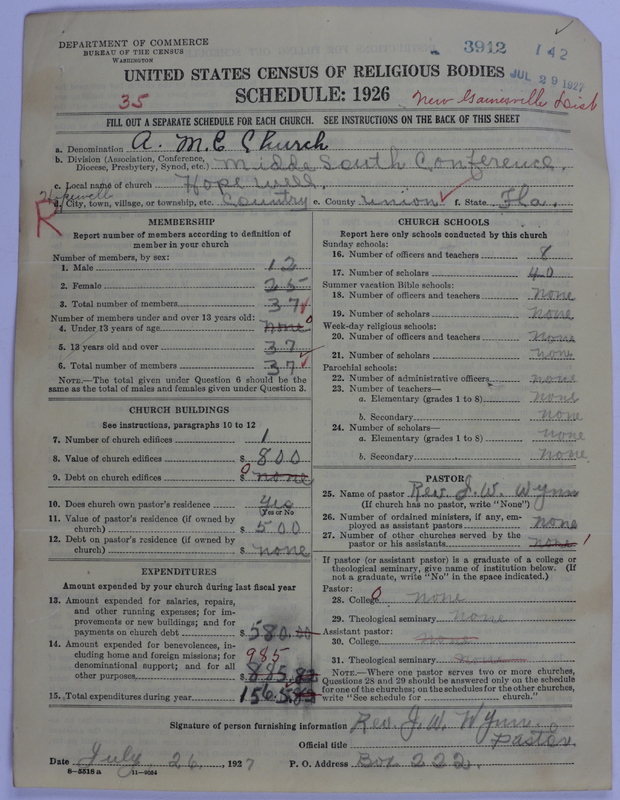 DEPARTMENT OF COMMERCE
BUREAU OF THE CENSUS
WASHINGTON
3912 142
JUL 29 1927
UNITED STATES CENSUS OF RELIGIOUS BODIES
SCHEDULE: 1926
35
New Gainesville Dist
FILL OUT A SEPARATE SCHEDULE FOR EACH CHURCH. SEE INSTRUCTIONS ON THE BACK OF THIS SHEET
a. Denomination A. M. E Church
b. Division (Association, Conference, Diocese, Presbytery, Synod, etc.) Midde South Conference.
c. Local name of church Hope will.
Hopewell
R
d. City, town, village, or township, etc. Country e. County union f. State Fla.
MEMBERSHIP
Report number of members according to definition of member in your church
Number of members, by sex:
1. Male 12
2. Female 25
3. Total number of members 37
Number of members under and over 13 years old:
4. Under 13 years of age none 0
5. 13 years old and over 37
6. Total number of members 37
NOTE.—The total given under Question 6 should be the same as the total of males and females given under Question 3.
CHURCH BUILDINGS
See instructions, paragraphs 10 to 12
7. Number of church edifices 1
8. Value of church edifices $ 800
9. Debt on church edifices $ none 0
10. Does church own pastor's residence yes
Yes or No
11. Value of pastor's residence (if owned by church) $ 500
12. Debt on pastor's residence (if owned by church) $ none
EXPENDITURES
Amount expended by your church during last fiscal year
13. Amount expended for salaries, repairs, and other running expenses; for improvements or new buildings; and for payments on church debt $ 580.00
14. Amount expended for benevolences, including home and foreign missions; for denominational support; and for all other purposes $ 885.83
985
15. Total expenditures during year $ 1565.83
CHURCH SCHOOLS
Report here only schools conducted by this church
Sunday schools:
16. Number of officers and teachers 8
17. Number of scholars 40
Summer vacation Bible schools:
18. Number of officers and teachers none
19. Number of scholars none
Week-day religious schools:
20. Number of officers and teachers none
21. Number of scholars none
Parochial schools:
22. Number of administrative officers none
23. Number of teachers—
a. Elementary (grades 1 to 8) none
b. Secondary none
24. Number of scholars—
a. Elementary (grades 1 to 8) none
b. Secondary none
PASTOR
25. Name of pastor Rev. J. W. Wynn
(If church has no pastor, write "None")
26. Number of ordained ministers, if any, employed as assistant pastors none
27. Number of other churches served by the pastor or his assistants none 1
If pastor (or assistant pastor) is a graduate of a college or theological seminary, give name of institution below. (If not a graduate, write "No" in the space indicated.)
Pastor:
28. College 0 none
29. Theological seminary none
Assistant pastor:
30. College none
31. Theological seminary none
NOTE.—Where one pastor serves two or more churches, Questions 28 and 29 should be answered only on the schedule for one of the churches; on the schedules for the other churches, write "See schedule for church."
Signature of person furnishing information Rev. J. W. Wynn.
Official title Pastor.
Date July. 26., 1927 P. O. Address Box 222.
8—5518 a 11—9054